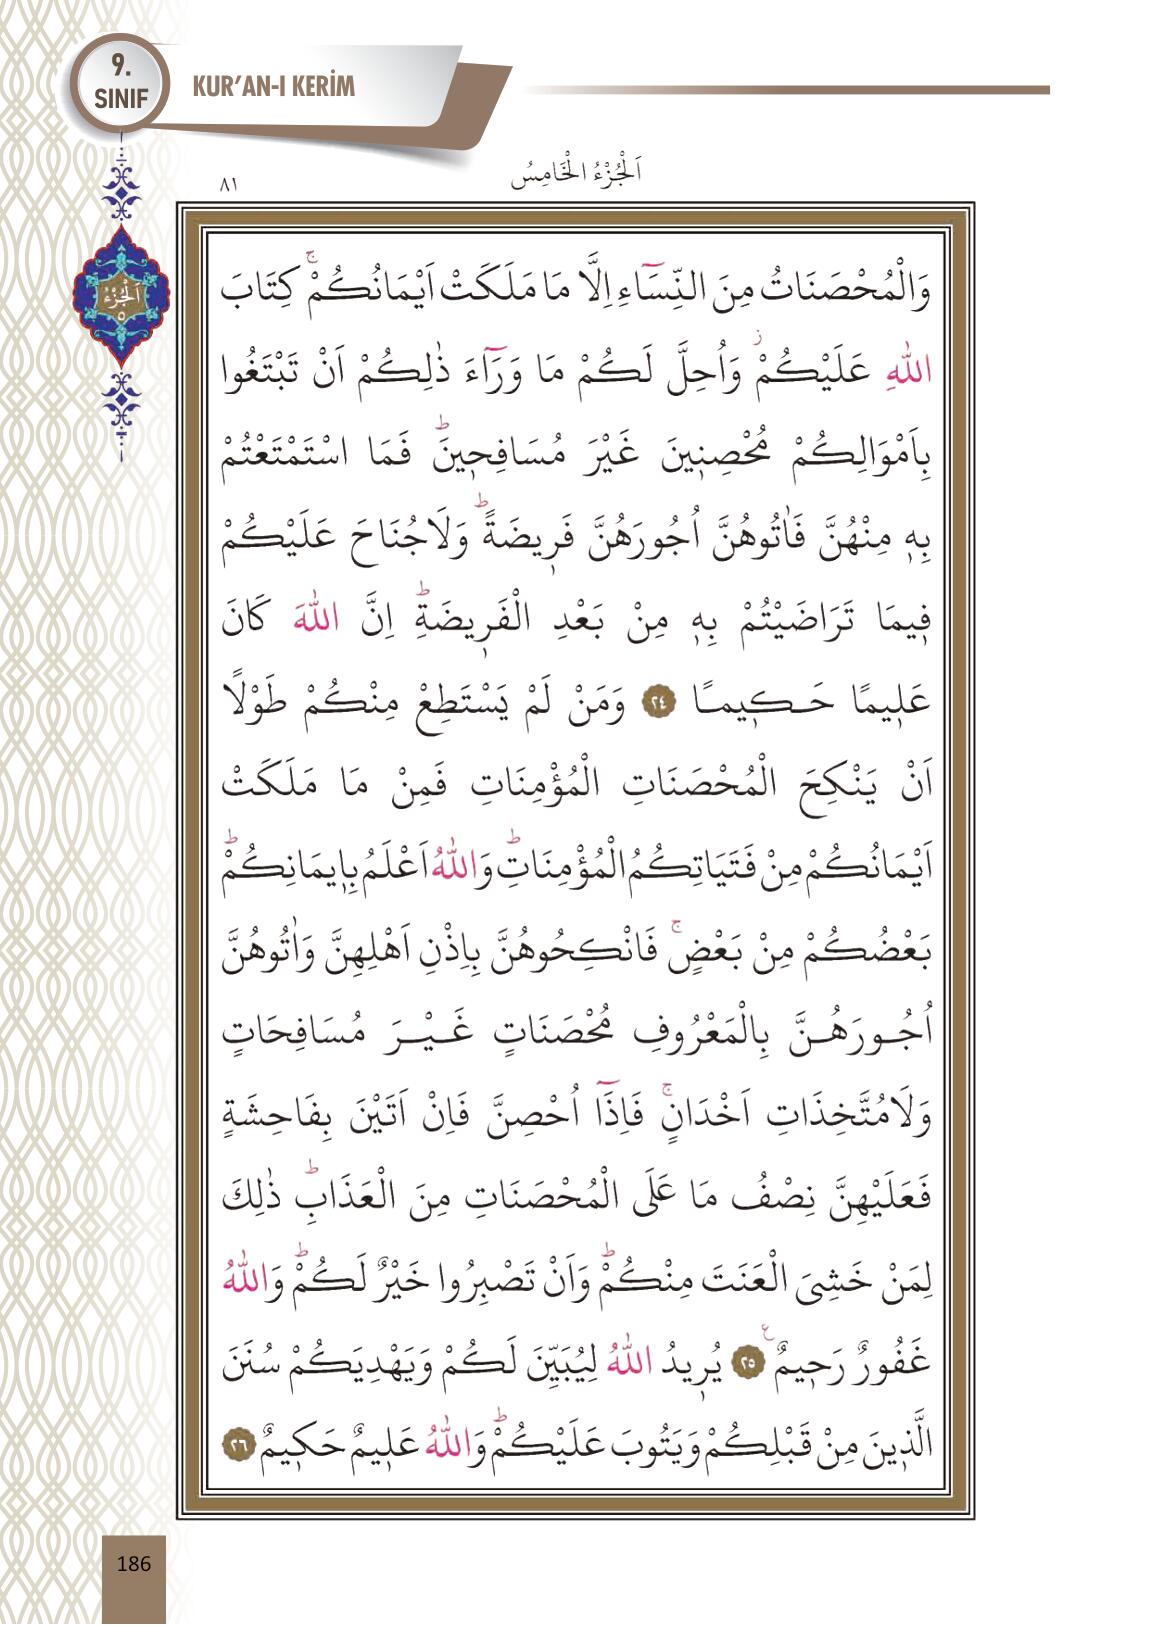 9.
SINIF
KUR'AN-I KERİM
اَلْجُزْءُ الْخَامِسُ
٨١
اَلْجُزْءُ
٥
وَالْمُحْصَنَاتُ مِنَ النِّسَٓاءِ اِلَّا مَا مَلَكَتْ اَيْمَانُكُمْۚ كِتَابَ
اللّٰهِ عَلَيْكُمْۚ وَاُحِلَّ لَكُمْ مَا وَرَٓاءَ ذٰلِكُمْ اَنْ تَبْتَغُوا
بِاَمْوَالِكُمْ مُحْصِن۪ينَ غَيْرَ مُسَافِح۪ينَۜ فَمَا اسْتَمْتَعْتُمْ
بِه۪ مِنْهُنَّ فَاٰتُوهُنَّ اُجُورَهُنَّ فَر۪يضَةًۜ وَلَا جُنَاحَ عَلَيْكُمْ
ف۪يمَا تَرَاضَيْتُمْ بِه۪ مِنْ بَعْدِ الْفَر۪يضَةِۜ اِنَّ اللّٰهَ كَانَ
عَل۪يمًا حَك۪يمًا ٢٤ وَمَنْ لَمْ يَسْتَطِعْ مِنْكُمْ طَوْلًا
اَنْ يَنْكِحَ الْمُحْصَنَاتِ الْمُؤْمِنَاتِ فَمِنْ مَا مَلَكَتْ
اَيْمَانُكُمْ مِنْ فَتَيَاتِكُمُ الْمُؤْمِنَاتِۜ وَاللّٰهُ اَعْلَمُ بِا۪يمَانِكُمْۜ
بَعْضُكُمْ مِنْ بَعْضٍۚ فَانْكِحُوهُنَّ بِاِذْنِ اَهْلِهِنَّ وَاٰتُوهُنَّ
اُجُورَهُنَّ بِالْمَعْرُوفِ مُحْصَنَاتٍ غَيْرَ مُسَافِحَاتٍ
وَلَا مُتَّخِذَاتِ اَخْدَانٍۚ فَاِذَٓا اُحْصِنَّ فَاِنْ اَتَيْنَ بِفَاحِشَةٍ
فَعَلَيْهِنَّ نِصْفُ مَا عَلَى الْمُحْصَنَاتِ مِنَ الْعَذَابِۜ ذٰلِكَ
لِمَنْ خَشِيَ الْعَنَتَ مِنْكُمْۜ وَاَنْ تَصْبِرُوا خَيْرٌ لَكُمْۜ وَاللّٰهُ
غَفُورٌ رَح۪يمٌ۟ ٢٥ يُر۪يدُ اللّٰهُ لِيُبَيِّنَ لَكُمْ وَيَهْدِيَكُمْ سُنَنَ
الَّذ۪ينَ مِنْ قَبْلِكُمْ وَيَتُوبَ عَلَيْكُمْۜ وَاللّٰهُ عَل۪يمٌ حَك۪يمٌ ٢٦
186